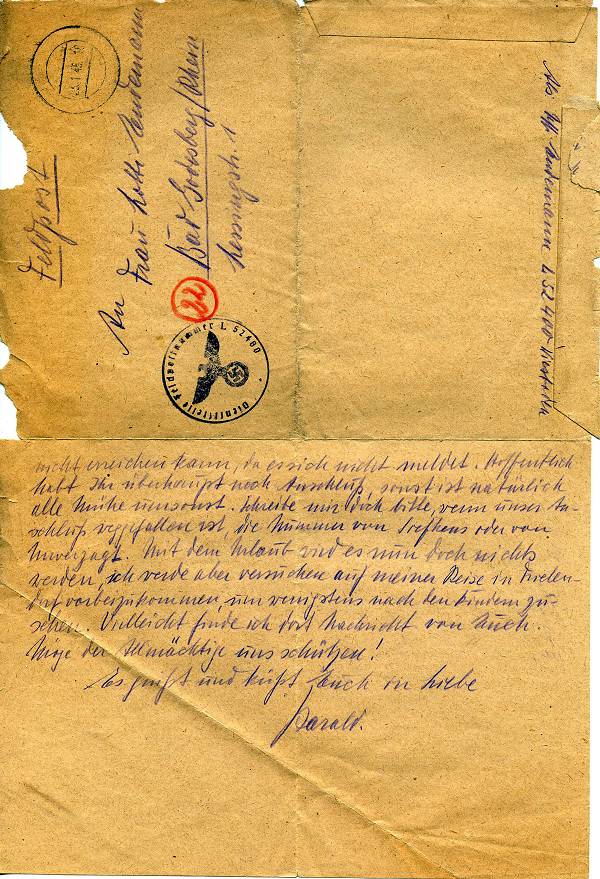 Feldpost
23.1.45
An
Frau Lotte Lindemann
Bad Godesberg/Rhein
Lessingstr. 1
22
Dienststelle Feldpostnummer L 52400
Abs. Lindemann L 52 400 Wiesbaden
nicht erreichen kann, da es sich nicht meldet. Hoffentlich
habt Ihr überhaupt noch Anschluß, sonst ist natürlich
alle Mühe umsonst. Schreibe mir doch bitte, wenn unser An-
schluß weggefallen ist, die Nummer von oder von
Unverzagt. Mit dem Urlaub wird es nun doch nichts
werden, ich werde aber versuchen auf meiner Reise in
vorbeizukommen, um wenigstens nach den Kindern zu
sehen. Vielleicht finde ich dort Nachricht von Euch.
Möge der Allmächtige uns schützen!
Es grüßt und küßt Euch in Liebe
Harald.